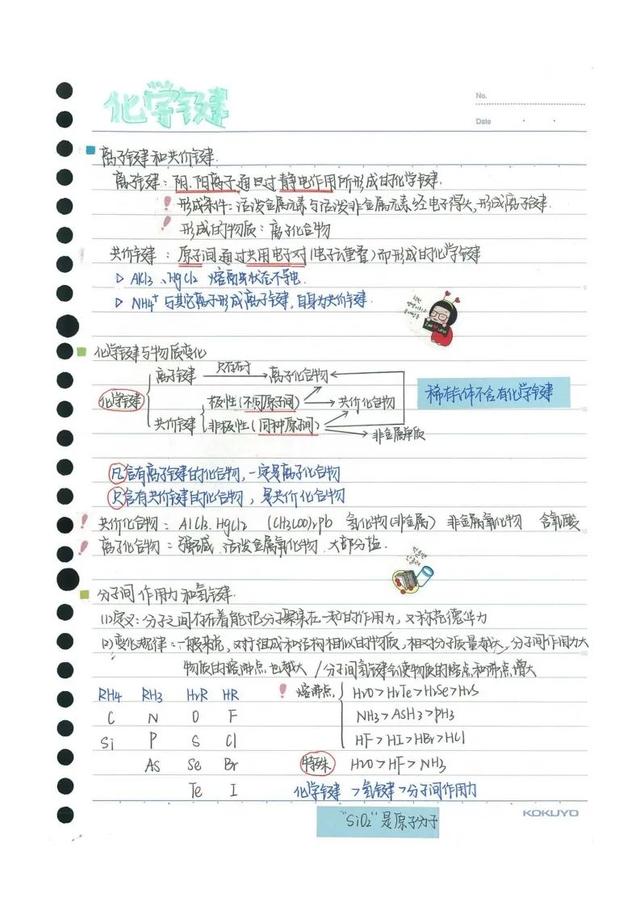 化学键
No.
Date
离子键和共价键.
离子键：阴、阳离子通过静电作用所形成的化学键.
! 形成条件：活泼金属元素与活泼非金属元素经电子得失,形成离子键.
! 形成的物质：离子化合物
共价键：原子间通过共用电子对(电子云重叠)而形成的化学键
▷ AlCl3、HgCl2 熔融状态不导电.
▷ NH4+ 与其它离子形成离子键,自身为共价键.
化学键与物质变化
离子键 只存在于 离子化合物
化学键 极性(不同原子间) 共价化合物
共价键 非极性(同种原子间) 非金属单质
稀有气体不含有化学键
凡含有离子键的化合物,一定是离子化合物
只含有共价键的化合物,是共价化合物
! 共价化合物：AlCl3.HgCl2 (CH3COO)2Pb 氢化物(非金属) 非金属氧化物 含氧酸
! 离子化合物：强碱 活泼金属氧化物 大部分盐.
分子间作用力和氢键.
(1)定义：分子之间存在着能把分子聚集在一起的作用力,又称范德华力
(2)变化规律：一般来说,对于组成和结构相似的物质,相对分子质量越大,分子间作用力大
物质的熔沸点也越大 / 分子间氢键会使物质的熔点和沸点增大
RH4 RH3 H2R HR ! 熔沸点 H2O>H2Te>H2Se>H2S
C N O F NH3>AsH3>PH3
Si P S Cl HF>HI>HBr>HCl
As Se Br 特殊 H2O>HF>NH3
Te I 化学键>氢键>分子间作用力
"SiO2"是原子分子
KOKUYO